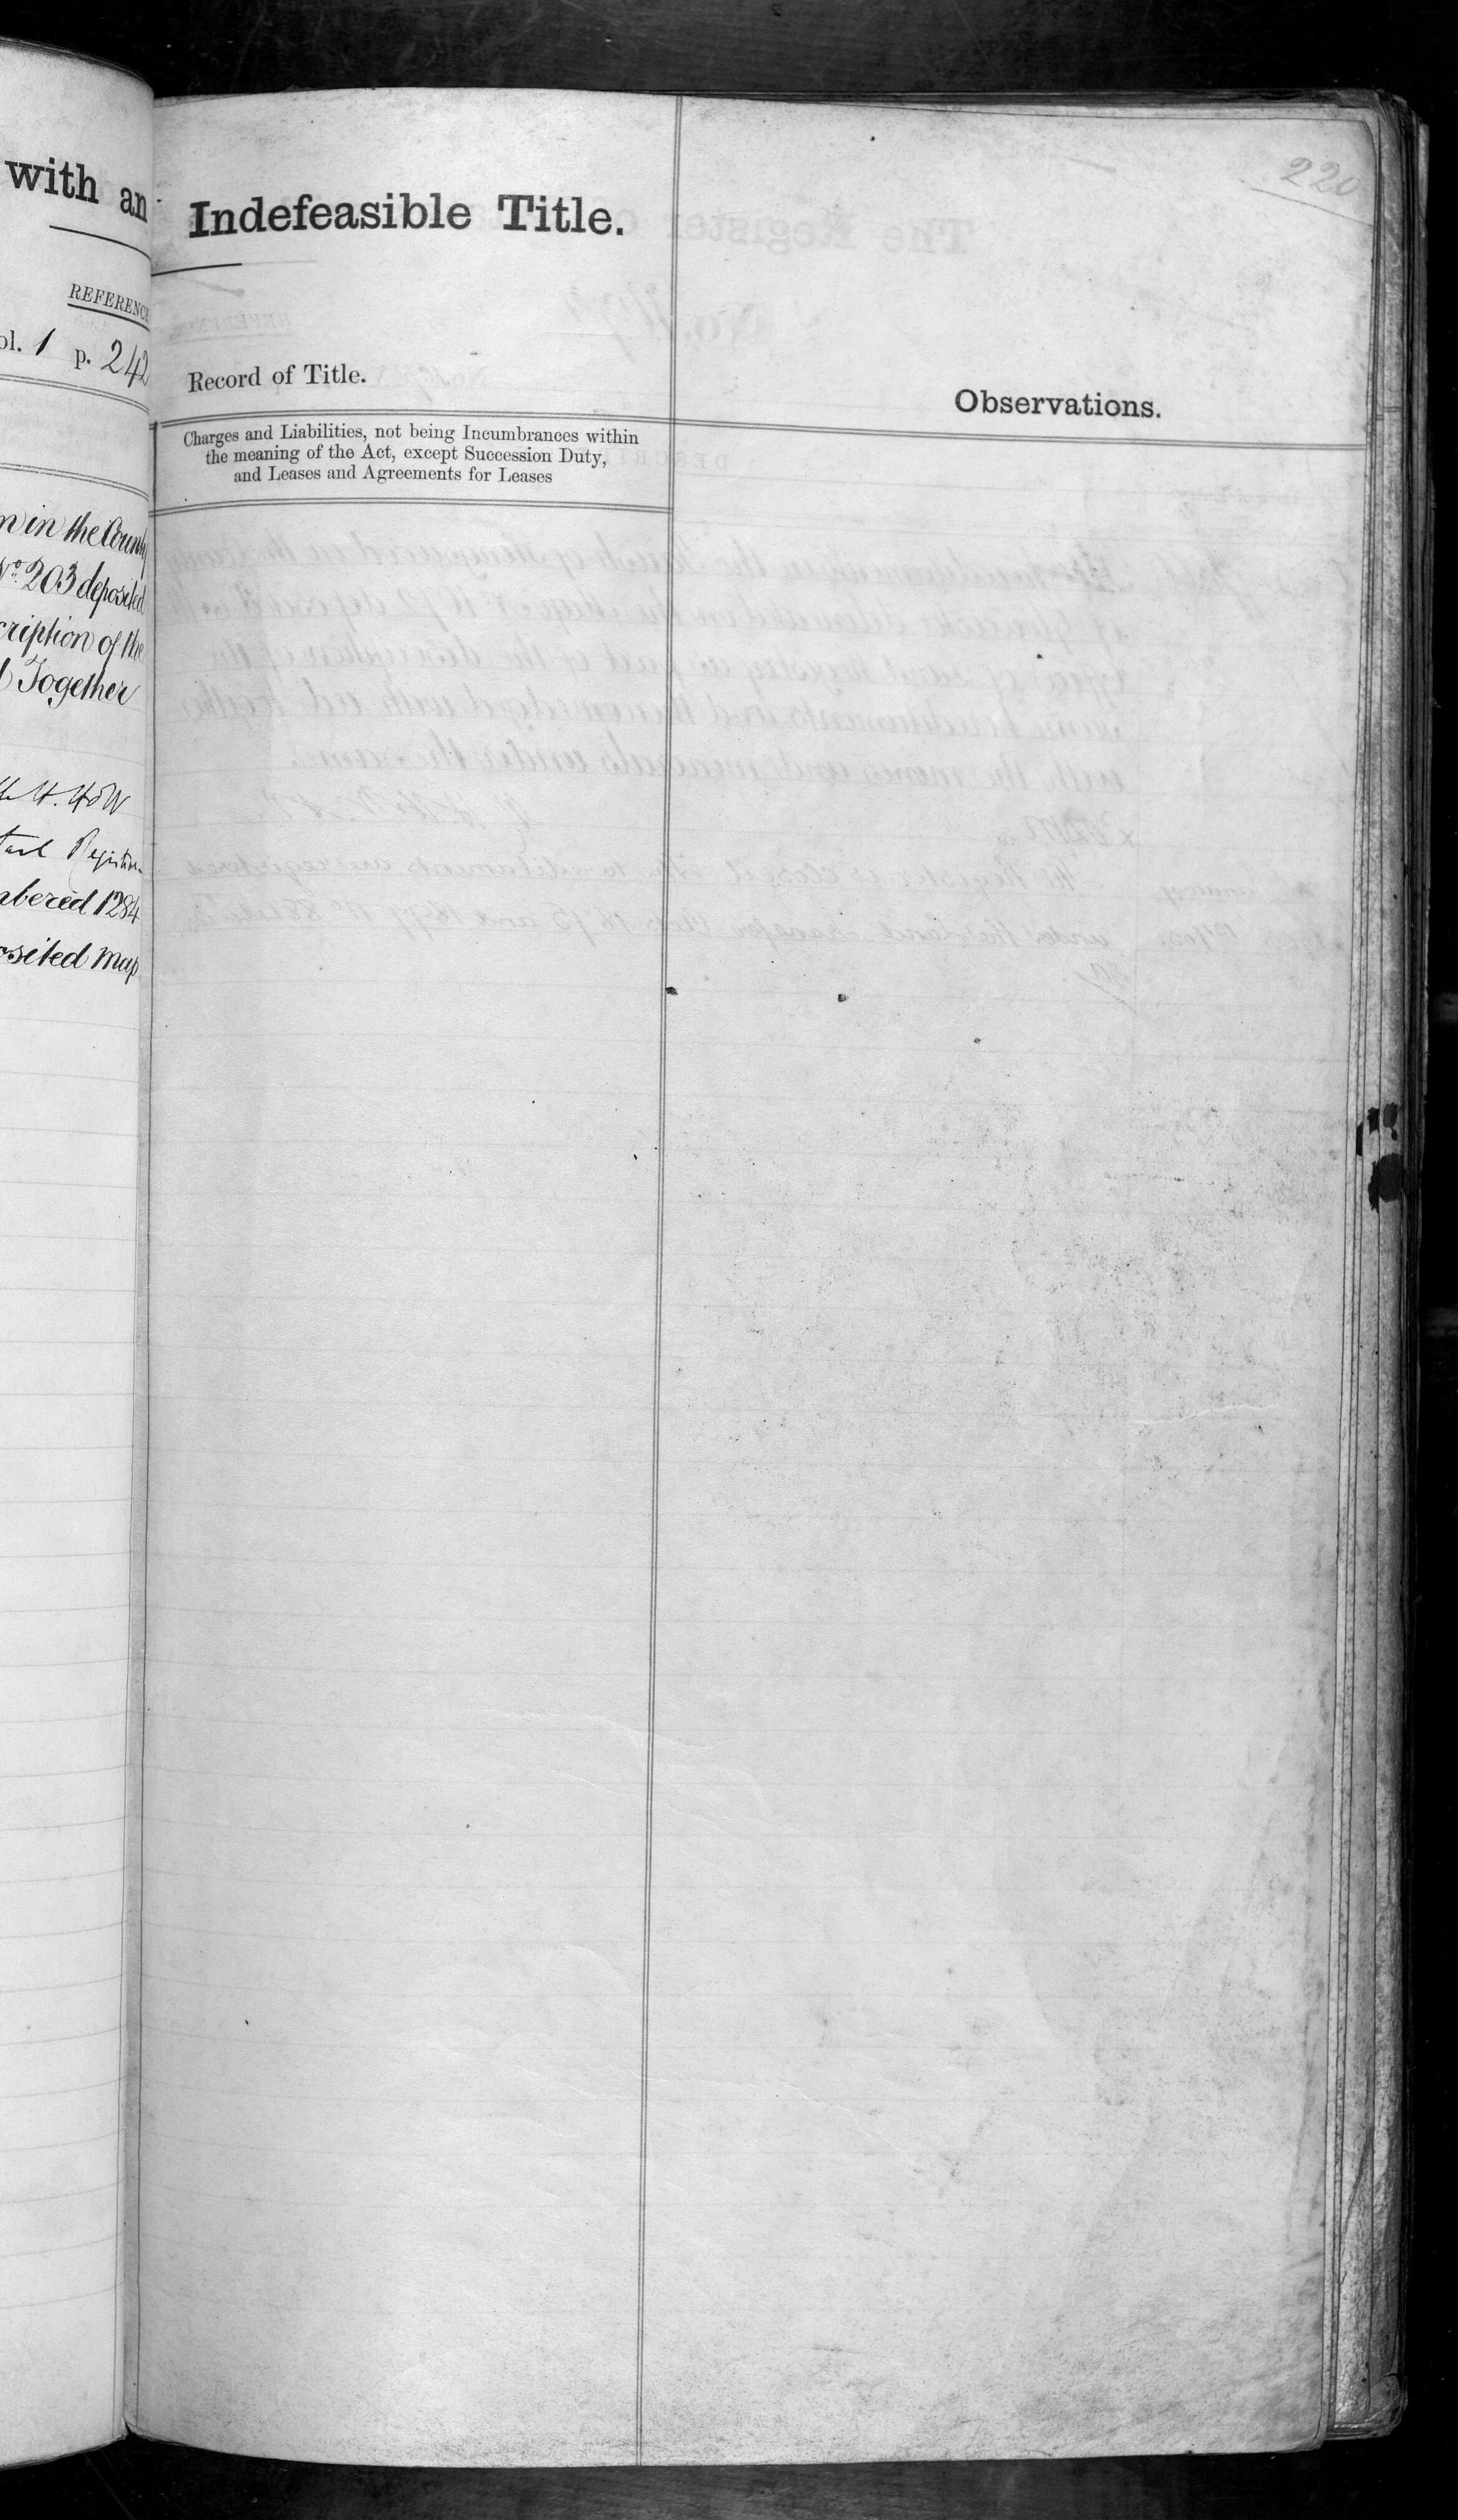 with an
REFERENCE
ol. 1 p. 242
n in the County
No. 203 deposited
cription of the
Together
Registrar
mbered 1284
osited map
220
Indefeasible Title.
Record of Title.
Observations.
Charges and Liabilities, not being Incumbrances within
the meaning of the Act, except Succession Duty,
and Leases and Agreements for Leases